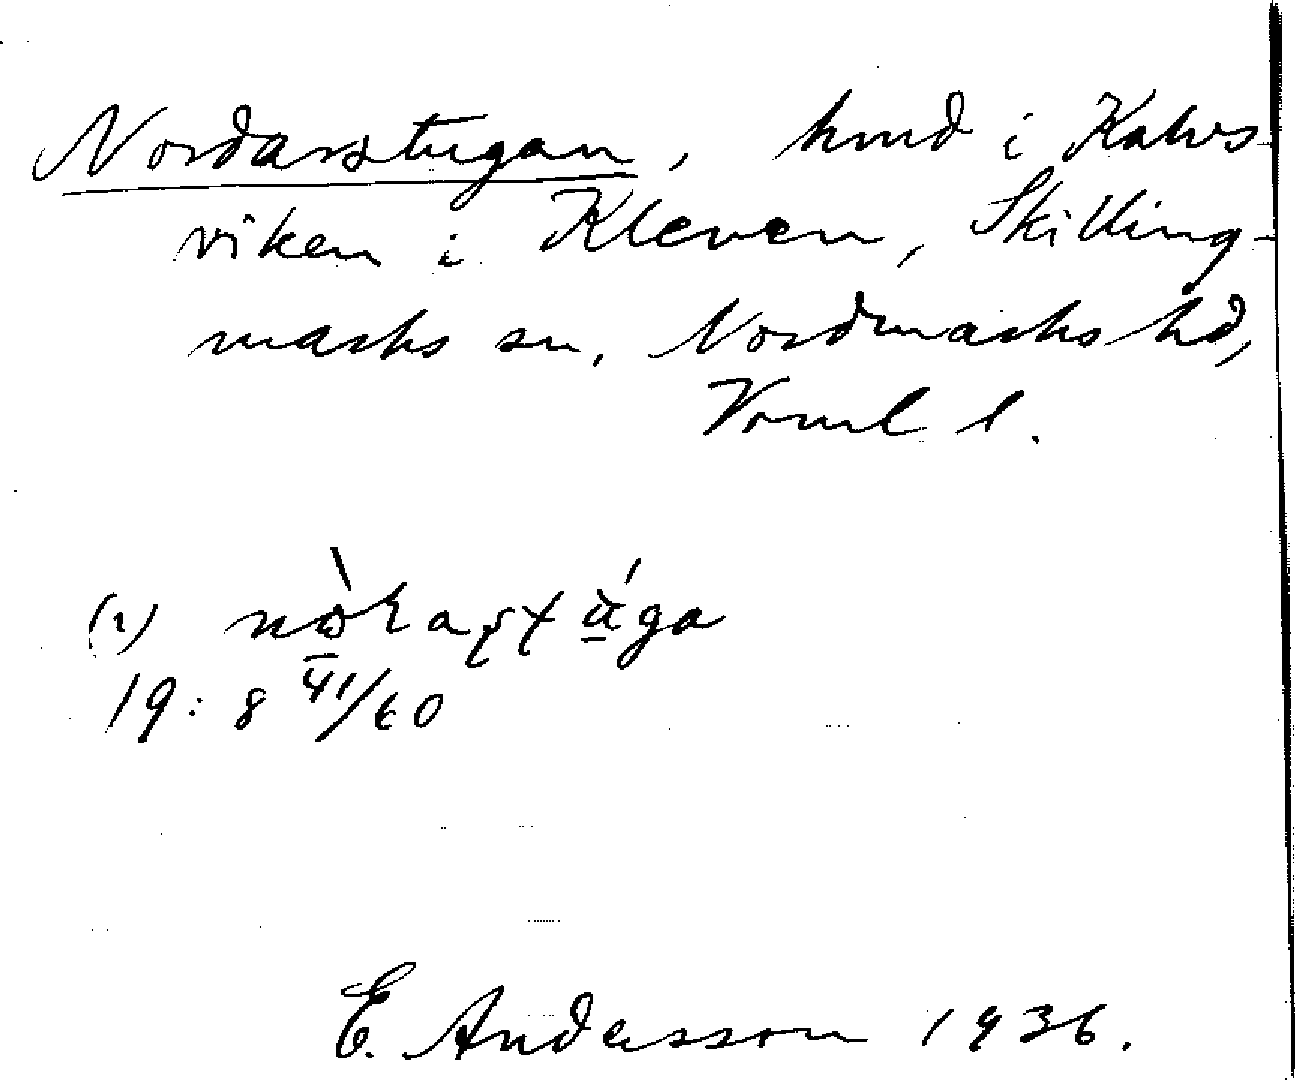 Nordarstugan, hmd i Kalvs-
viken i Kleven, Skilling-
marks sn, Nordmarks hd,
Vrml l.
(1)
19: 8 41/60
E. Andersson 1936.